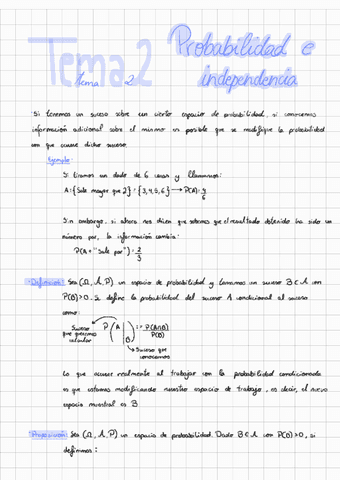 Tema 2 Probabilidad e
tema 2 independencia
Si tenemos un suceso sobre un cierto espacio de probabilidad, si conocemos
información adicional sobre el mismo es posible que se modifique la probabilidad
con que ocurre dicho suceso.
Ejemplo:
Si tiramos un dado de 6 caras y llamamos:
A:{Sale mayor que 2} = {3,4,5,6} → P(A)= 4/6
Sin embargo, si ahora nos dicen que sabemos que el resultado obtenido ha sido un
número par, la información cambia:
P(A + "Sale par") = 2/3
Definición: Sea (Ω, A, P) un espacio de probabilidad y tomamos un suceso B ∈ A con
P(B)>0. Se define la probabilidad del suceso A condicional al suceso
como:
Suceso que queremos calcular P(A|B) := P(A∩B)/P(B)
Suceso que conocemos
Lo que ocurre realmente al trabajar con la probabilidad condicionada
es que estamos modificando nuestro espacio de trabajo, es decir, el nuevo
espacio muestral es B
Proposición: Sea (Ω, A, P) un espacio de probabilidad. Dado B ∈ A con P(B)>0, si
definimos: